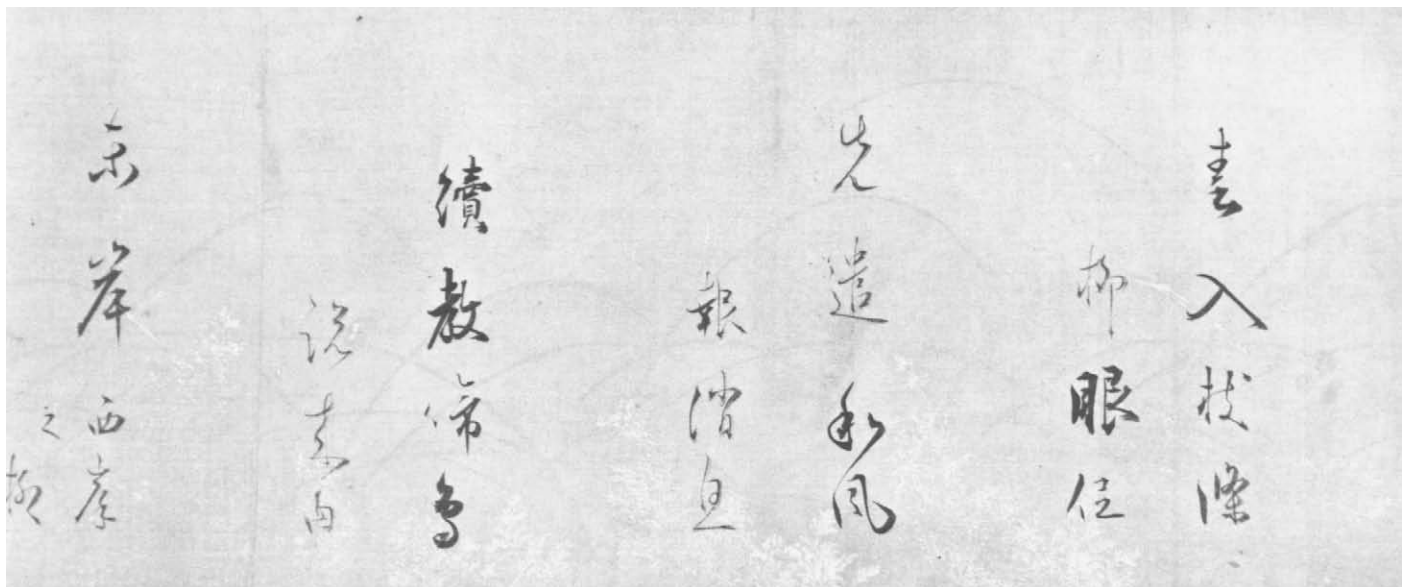 春入枝條
柳眼低
先遣和風
報消息
續教啼鳥
說来由
東岸西岸
之柳